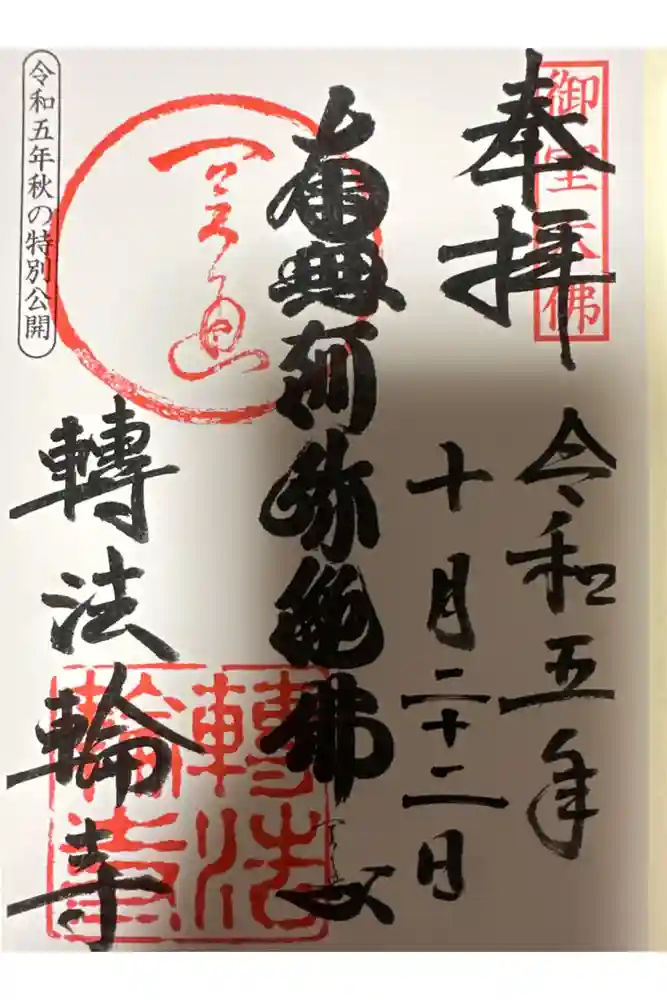 奉拝
御室大佛
令和五年
十月二十二日
南無阿弥陀佛
令和五年秋の特別公開
轉法輪寺
轉法
輪寺